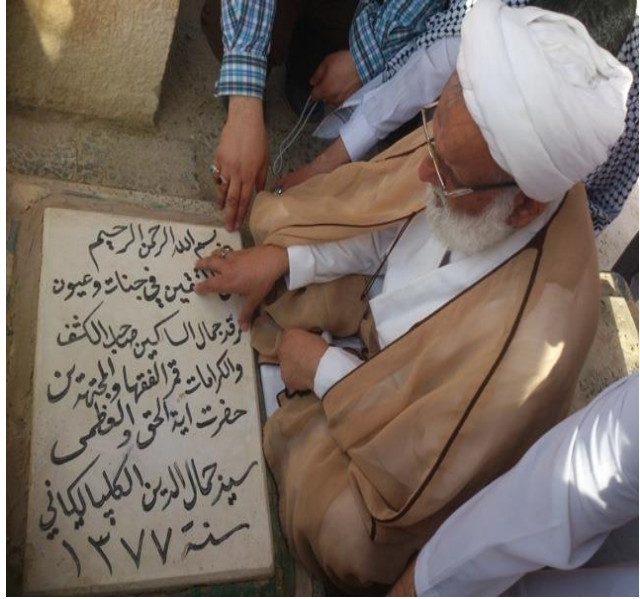 بسم الله الرحمن الرحيم
المتقين في جنات وعيون
مرقد جمال السالكين صاحب الكشف
والكرامات قمر الفقها والمجتهدين
حضرت اية الحق و العظمى
سيد جمال الدين الگلپايگاني
سنة ١٣٧٧